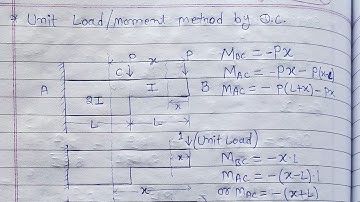 * Unit Load/moment method by D.C.
P x P
C I
A B
2I x
L L
M_BC = -Px
M_AC = -Px - P(x-L)
M_AC = - P(L+x) - Px
1 (Unit Load)
x
x
m_BC = -x.1
m_AC = -(x-L).1
or m_AC = -(x+L)